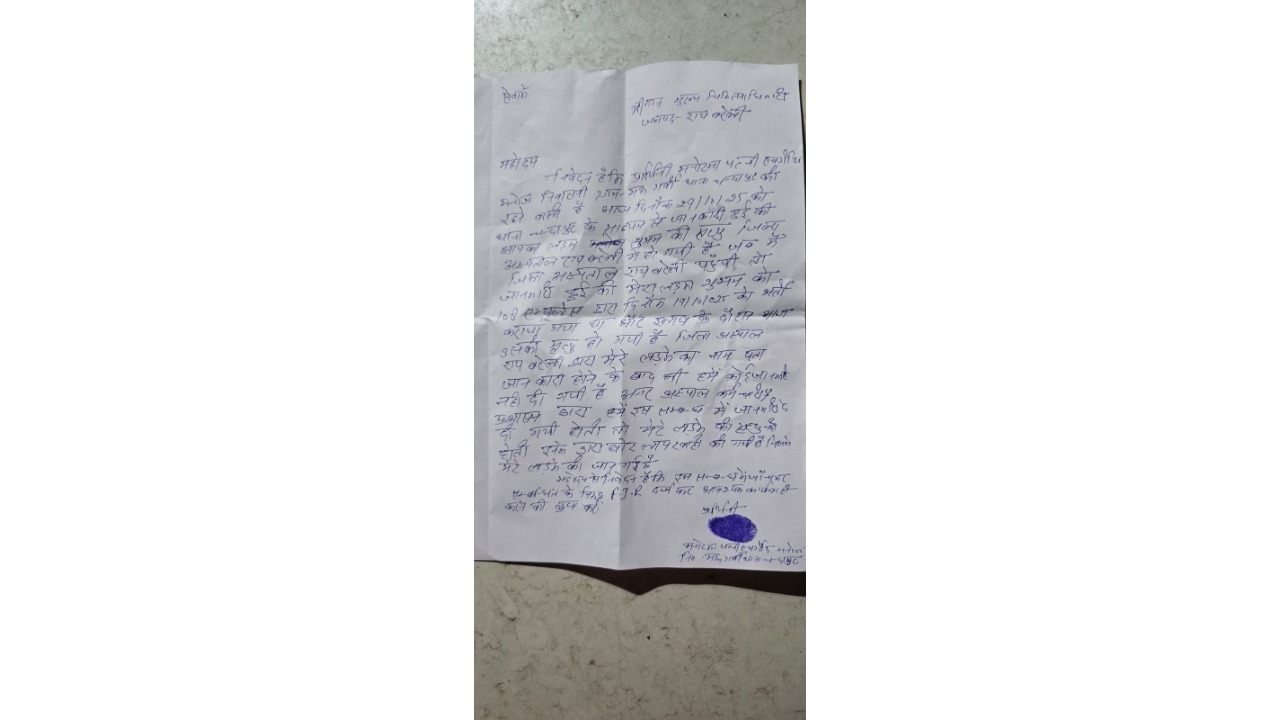 सेवामें
श्रीमान मुख्य चिकित्साधिकारी
जनपद- रायबरेली
महोदय
निवेदन है कि प्रार्थिनी पत्नी स्वर्गीय
मनोज निवासिनी थाना की
रहने वाली है आज दिनांक 29/10/25 को
थाना के माध्यम से जानकारी हुई की
आपका लड़का की मृत्यु जिला
अस्पताल रायबरेली में हो गयी है जब मैं
जिला अस्पताल रायबरेली पहुंची तो
जानकारी हुई की मेरा लड़का को
108 एम्बुलेंस द्वारा दिनांक 19/10/025 को भर्ती
कराया गया था और इलाज के दौरान
उसकी मृत्यु हो गयी है जिला अस्पताल
रायबरेली द्वारा मेरे लड़के का नाम पता
जानकारी होने के बाद भी हमें कोई जानकारी
नही दी गयी है अगर अस्पताल कर्मचारी
द्वारा हमें इस सम्बन्ध में जानकारी
दी गयी होती तो मेरे लड़के की मृत्यु न
होती इनके द्वारा घोर लापरवाही की गयी है जिससे
मेरे लड़के की जान गई है
महोदय से निवेदन है कि इस सम्बन्ध में जाँच कर
सम्बन्धित के विरुद्ध F.I.R दर्ज कर आवश्यक कार्यवाही
करने की कृपा करें
प्रार्थिनी
पत्नी स्वर्गीय मनोज